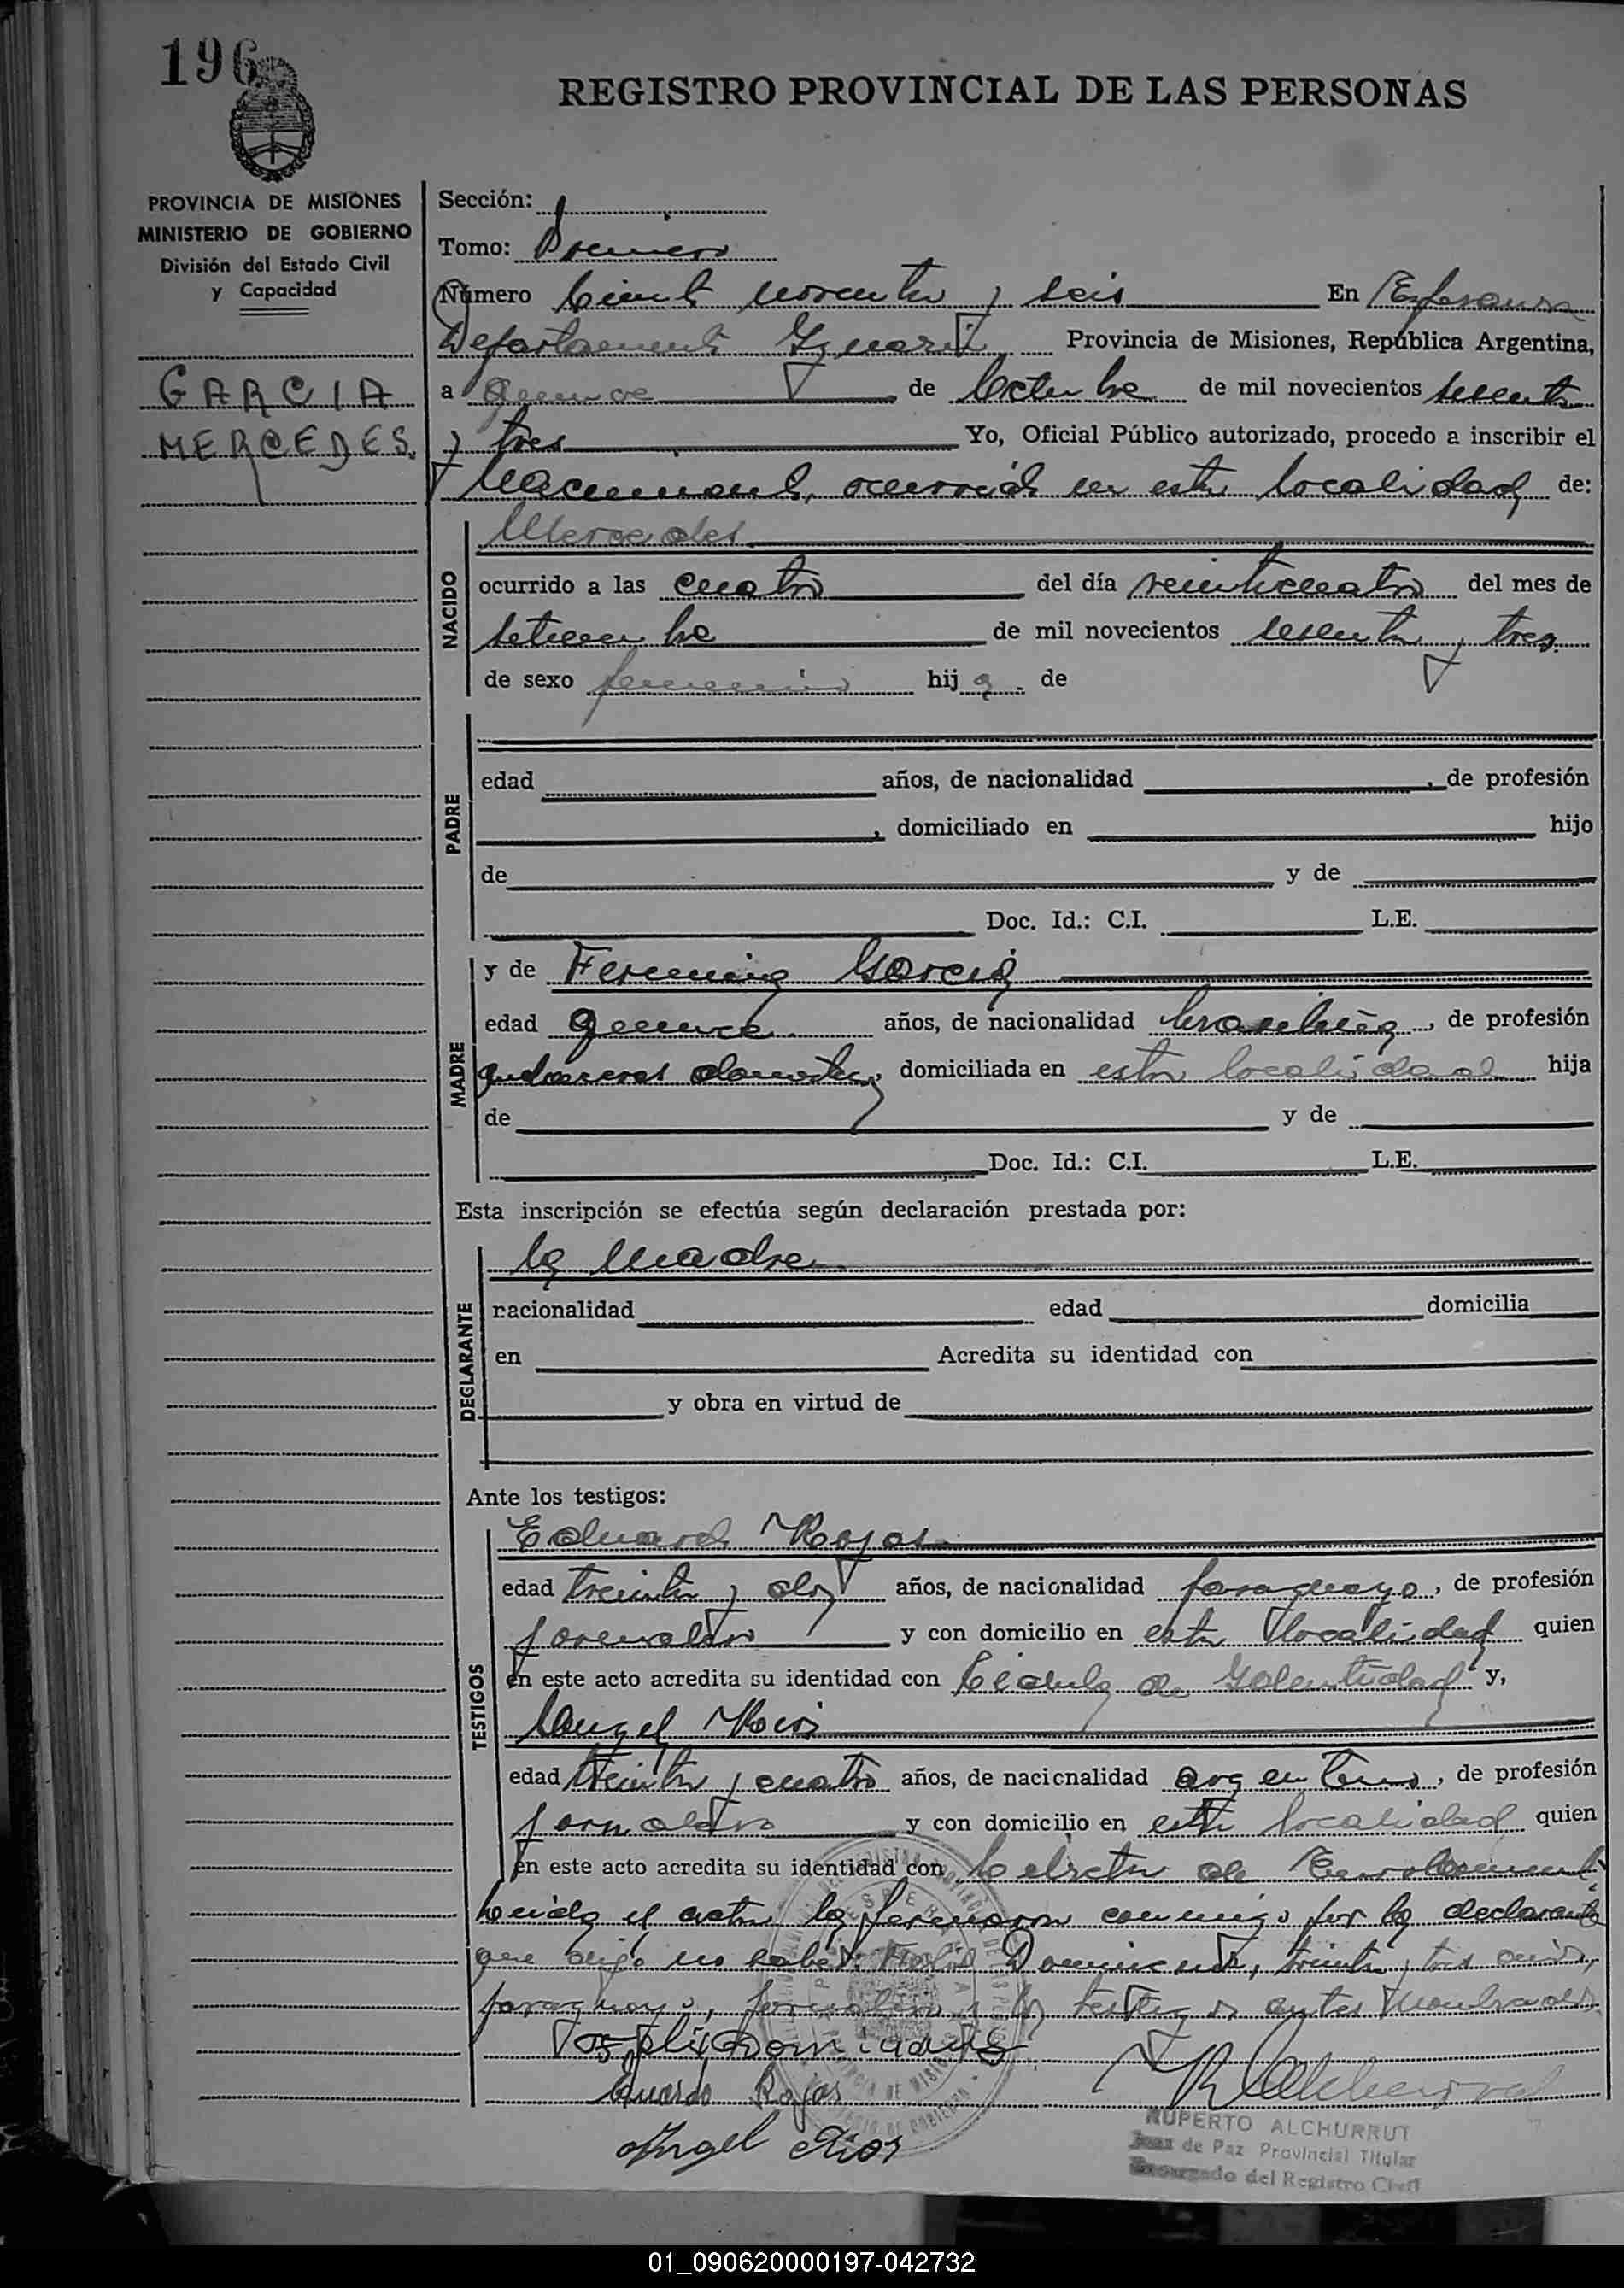 196
REGISTRO PROVINCIAL DE LAS PERSONAS
PROVINCIA DE MISIONES
MINISTERIO DE GOBIERNO
División del Estado Civil
y Capacidad
GARCIA
MERCEDES.
Sección:
Tomo: Primero
Número Ciento noventa y seis En Esperanza
Departamento Iguazú Provincia de Misiones, República Argentina,
a quince de Octubre de mil novecientos sesenta
y tres Yo, Oficial Público autorizado, procedo a inscribir el
Nacimiento, ocurrido en esta localidad de:
NACIDO
Mercedes
ocurrido a las cuatro del día veinticuatro del mes de
setiembre de mil novecientos sesenta y tres
de sexo femenino hija de
PADRE
edad años, de nacionalidad , de profesión
, domiciliado en hijo
de y de
Doc. Id.: C.I. L.E.
MADRE
y de Garcia
edad quince años, de nacionalidad brasileña, de profesión
quehaceres domesticos, domiciliada en esta localidad hija
de y de
Doc. Id.: C.I. L.E.
Esta inscripción se efectúa según declaración prestada por:
DECLARANTE
la madre
nacionalidad edad domicilia
en Acredita su identidad con
y obra en virtud de
Ante los testigos:
TESTIGOS
Eduardo Rojas
edad treinta y dos años, de nacionalidad paraguayo, de profesión
jornalero y con domicilio en esta localidad quien
en este acto acredita su identidad con Cedula de Identidad y,
Angel Rios
edad treinta y cuatro años, de nacionalidad argentino, de profesión
jornalero y con domicilio en esta localidad quien
en este acto acredita su identidad con Libreta de Enrolamiento
Leida el acta la firmaron conmigo por la declarante
que dijo no saber, treinta y tres años,
paraguayo, jornalero y los testigos antes nombrados
Eduardo Rojas
Angel Rios
RUPERTO ALCHURRUT
Juez de Paz Provincial Titular
Encargado del Registro Civil
01_090620000197-042732